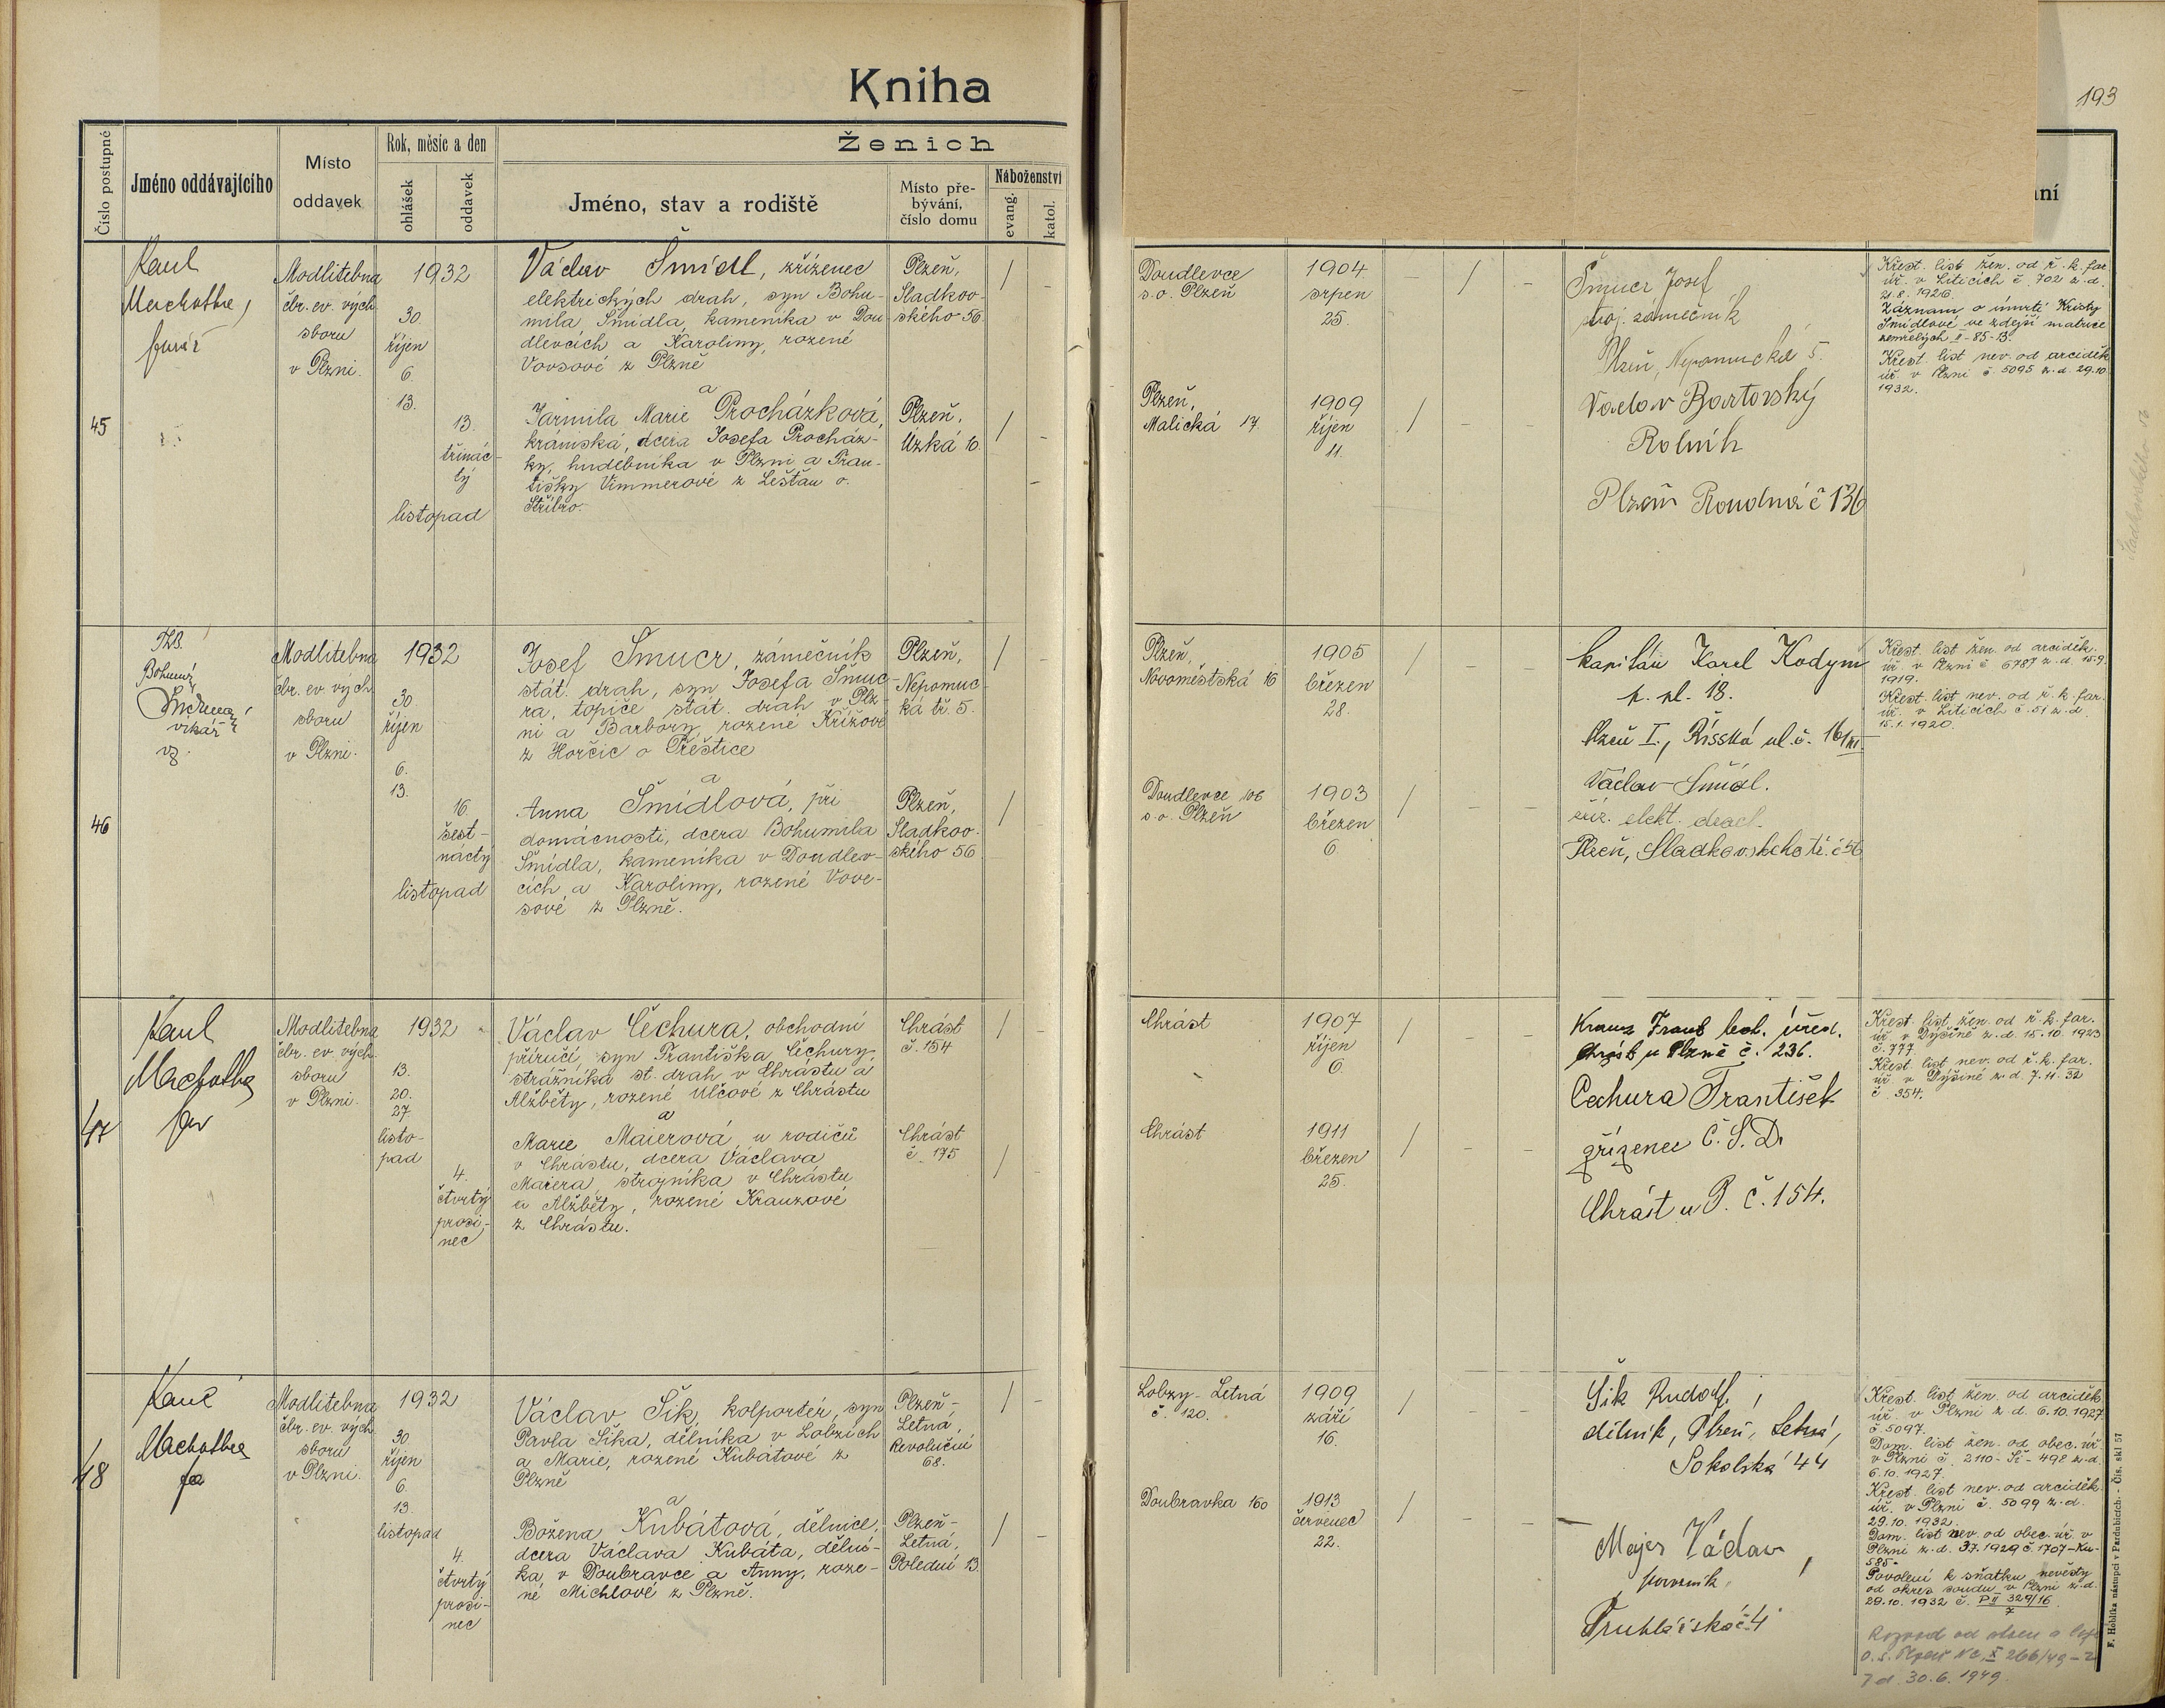 Kniha
193
Ženich
Číslo postupné
Jméno oddávajícího
Místo
oddavek
Rok, měsíc a den
ohlášek
oddavek
Jméno, stav a rodiště
Místo pře-
bývání,
číslo domu
Náboženství
evang.
katol.
ní
45
Modlitebna
čbr. ev. vých.
sboru
v Plzni.
1932
30.
říjen
6.
13.
13.
třinác-
tý
listopad
Václav Šmídl, zřízenec
elektrických drah, syn Bohu-
mila Šmídla, kameníka v Dou-
dlevcích a Karoliny, rozené
Vovsové z Plzně
a
Jarmila Marie Procházková,
krámská, dcera Josefa Procház-
ky, hudebníka v Plzni a Fran-
tišky Vimmerové z Lešťan o.
Stříbro.
Plzeň,
Sladkov-
ského 56
Plzeň,
Úzká 16.
Doudlevce
s.o. Plzeň
1904
srpen
25.
Plzeň,
Malická 17
1909
říjen
11.
Šmucr Josef
stroj. zámečník
Plzeň, Nepomucká 5.
Václav Bartovský
Rolník
Plzeň Roudná č 136
Křest. list žen. od ř. k. far.
úř. v Liticích č. 702 z. d.
21.8. 1926.
Záznam o úmrtí Kristy
Šmídlové ve zdejší matrice
zemřelých II-85-13.
Křest. list nev. od arciděk.
úř. v Plzni č. 5095 z. d. 29.10.
1932.
46
ThB.
Bohumír
vikář
vz.
Modlitebna
čbr. ev. vých.
sboru
v Plzni.
1932
30.
říjen
6.
13.
16.
šest-
náctý
listopad
Josef Šmucr, zámečník
stát. drah, syn Josefa Šmuc-
ra, topiče stát. drah v Plz-
ni a Barbory, rozené Křížové
z Horčic o Přeštice
a
Anna Šmídlová, při
domácnosti, dcera Bohumila
Šmídla, kameníka v Doudlev-
cích a Karoliny, rozené Vove-
sové z Plzně.
Plzeň,
Nepomuc-
ká tř. 5.
Plzeň,
Sladkov-
ského 56
Plzeň,
Novoměstská 16
1905
březen
28.
Doudlevce 106
s.o. Plzeň
1903
březen
6.
kapitán Karel Kodym
p. pl. 18.
Plzeň I., Říšská ul. č. 16/III
Václav Šmídl.
zříz. elekt. drah.
Plzeň, Sladkovského tř. č 56
Křest. list žen. od arciděk.
úř. v Plzni č 6787 z. d. 15.9.
1919.
Křest. list nev. od ř. k. far.
úř. v Liticích č. 51 z. d.
15.1. 1920.
47
Modlitebna
čbr. ev. vých.
sboru
v Plzni.
1932
13.
20.
27.
listo-
pad
4.
čtvrtý
prosi-
nec
Václav Čechura, obchodní
příručí, syn Františka Čechury,
strážníka st. drah v Chrástu a
Alžběty, rozené Ulčové z Chrástu
a
Marie Maierová, u rodičů
v Chrástu, dcera Václava
Maiera, strojníka v Chrástu
a Alžběty, rozené Krauzové
z Chrástu.
Chrást
č. 154
Chrást
č. 175
Chrást
1907
říjen
6.
Chrást
1911
březen
25.
Chrást u Plzně č. 236.
Čechura František
zřízenec Č.S.D.
Chrást u P. č. 154.
Křest. list žen. od ř. k. far.
úř. v Dýšině z. d. 15.10. 1923
č. 777.
Křest. list nev. od ř. k. far.
úř. v Dýšině z. d. 7.11. 32
č. 354.
48
Modlitebna
čbr. ev. vých.
sboru
v Plzni.
1932
30.
říjen
6.
13.
listopad
4.
čtvrtý
prosi-
nec
Václav Šik, kolportér, syn
Pavla Šika, dělníka v Lobzích
a Marie, rozené Kubátové z
Plzně
a
Božena Kubátová, dělnice,
dcera Václava Kubáta, dělní-
ka v Doubravce a Anny, roze-
né Michlové z Plzně.
Plzeň-
Letná,
Revoluční
68.
Plzeň-
Letná,
Polední 13.
Lobzy-Letná
č. 120.
1909
září
16.
Doubravka 160
1913
červenec
22.
Šik Rudolf,
dělník, Plzeň, Letná,
Sokolská 44
Majer Václav,
Truhlářská č. 4
Křest. list žen. od arciděk.
úř. v Plzni z d. 6.10. 1927
č. 5097.
Dom. list žen. od obec. úř.
v Plzni č. 2110-Ši-498 z. d.
6.10. 1927.
Křest. list nev. od arciděk.
úř. v Plzni č. 5099 z. d.
29.10. 1932.
Dom. list nev. od obec. úř. v
Plzni z. d. 3.7. 1929 č. 1707-Ku-
585.
Povolení k sňatku nevěsty
od okres. soudu v Plzni z. d.
29.10. 1932 č. P II 329/16
7
Rozvod od stolu a lože
o. s. Plzeň Nc X 266/49-2
z d. 30.6. 1949.
F. Hoblíka nástupci v Pardubicích. - Čís. skl 57